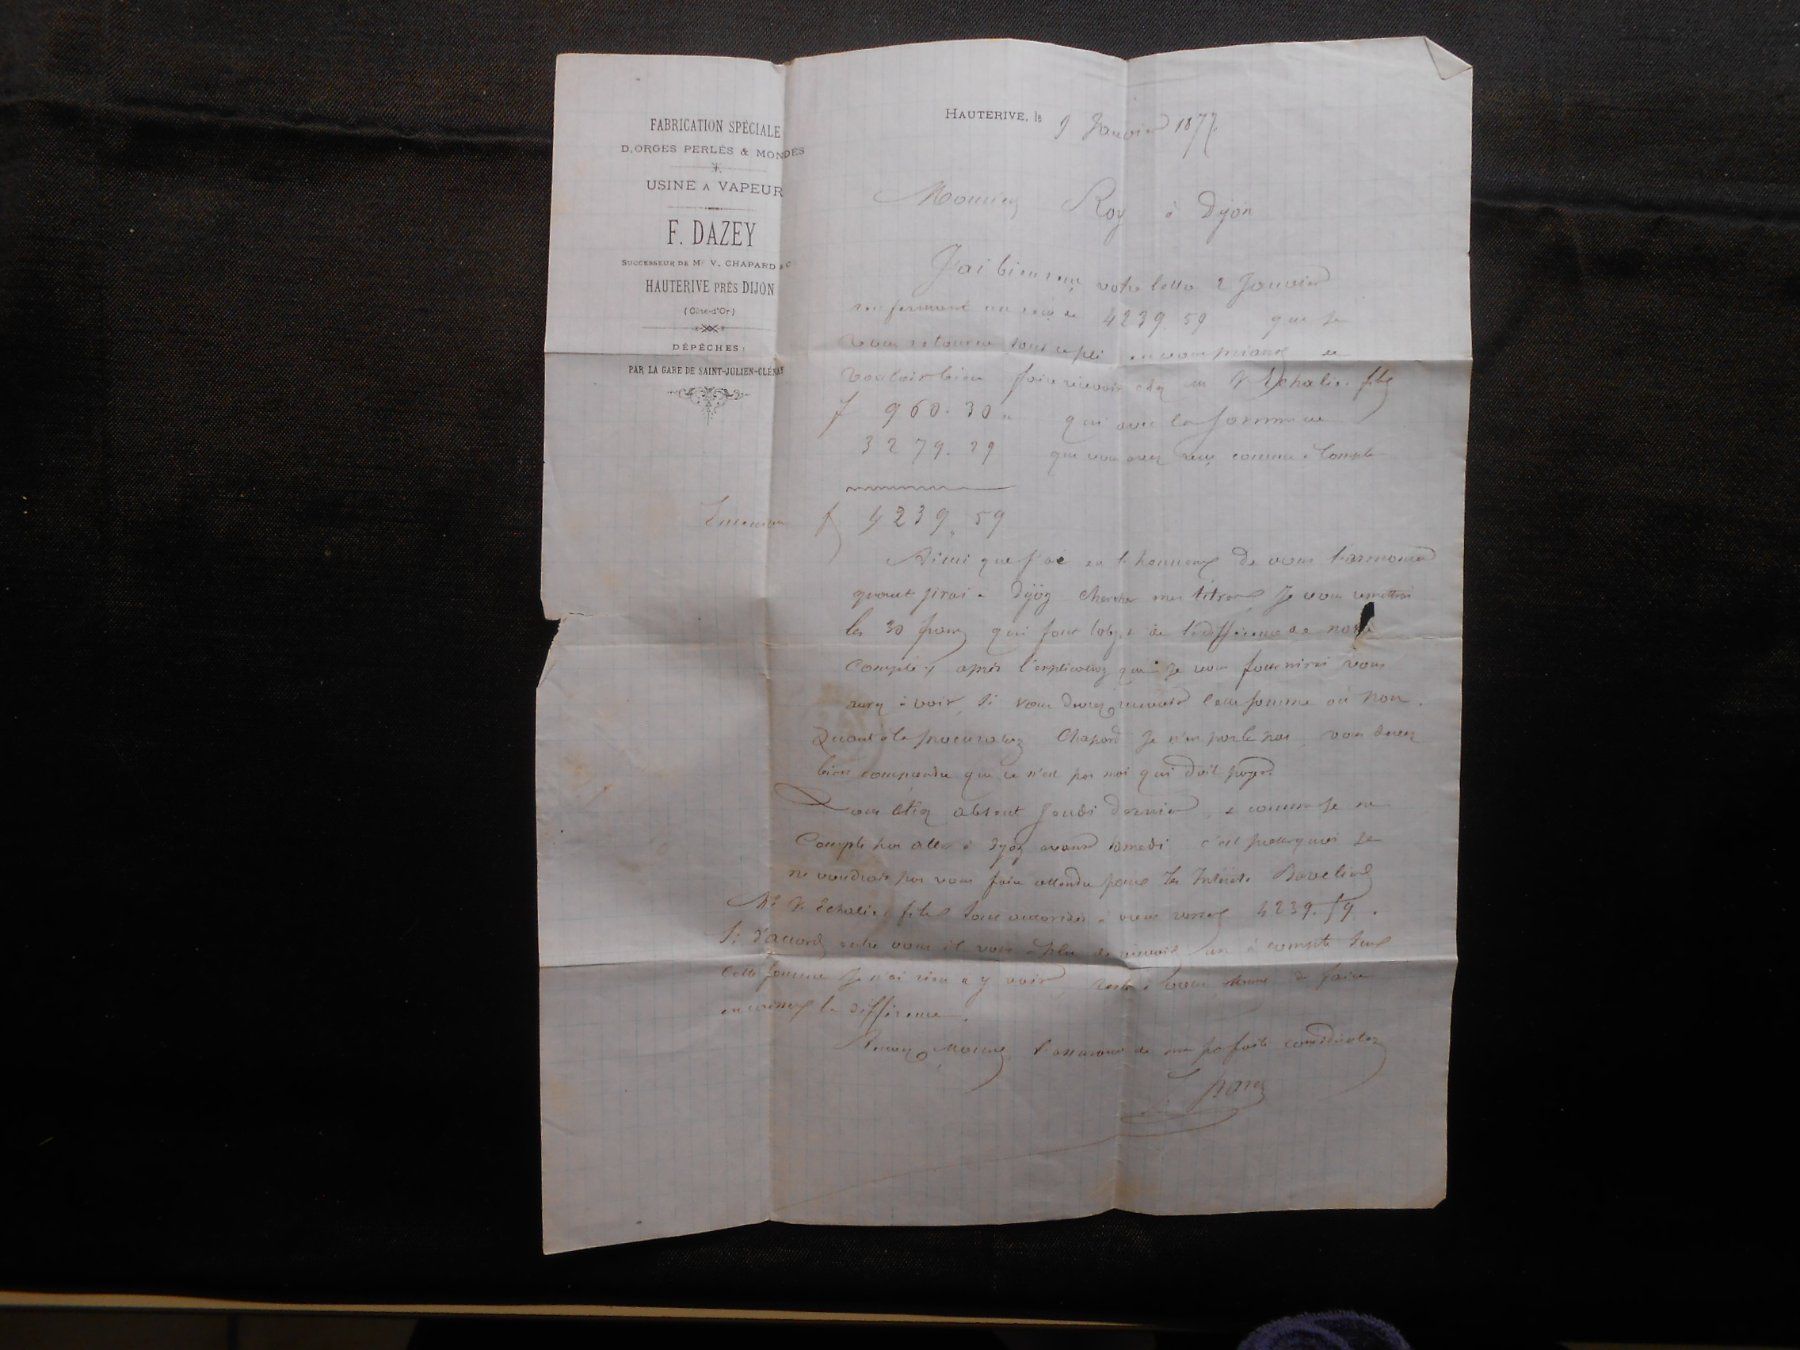 FABRICATION SPÉCIALE
D'ORGES PERLÉS & MONDÉS
USINE A VAPEUR
F. DAZEY
SUCCESSEUR DE Mr V. CHAPARD & Cie
HAUTERIVE PRÈS DIJON
(Côte-d'Or)
DÉPÊCHES:
PAR LA GARE DE SAINT-JULIEN-CLÉNAY
HAUTERIVE, le 9 Janvier 1877
Monsieur Roy à Dijon
J'ai bien reçu votre lettre 2 Janvier
renfermant un reçu de 4239.59 que je
vous retourne sous ce pli en vous priant de
vouloir bien faire recevoir chez Mr V Echalié fils
f 960.30 qui avec la somme de
3279.29 que vous avez reçu comme à Compte
f 4239.59
Ainsi que j'ai eu l'honneur de vous l'annoncer
quant j'irai à Dijon chercher mes titres Je vous remettrai
les 30 francs qui font l'objet de la différence de notre
compte, après l'explication que je vous fournirai vous
aurez à voir si vous devez recevoir cette somme où non.
Quant à la procuration Chapard Je n'en parle pas, vous devez
bien comprendre que ce n'est pas moi qui doit payer
Vous étiez absent Jeudi dernier, et comme Je ne
Compte pas aller à Dijon avant samedi c'est pourquoi Je
ne voudrais pas vous faire attendre pour les Intérêts
Mr V. Echalié fils sont autorisés à vous verser 4239.59.
Si d'accord entre vous il vous a plu de recevoir un à compte sur
Cette somme Je n'ai rien a y voir, reste à vous même de faire
encaisser la différence.
Recevez Monsieur l'assurance de ma parfaite considération
F. Dazey